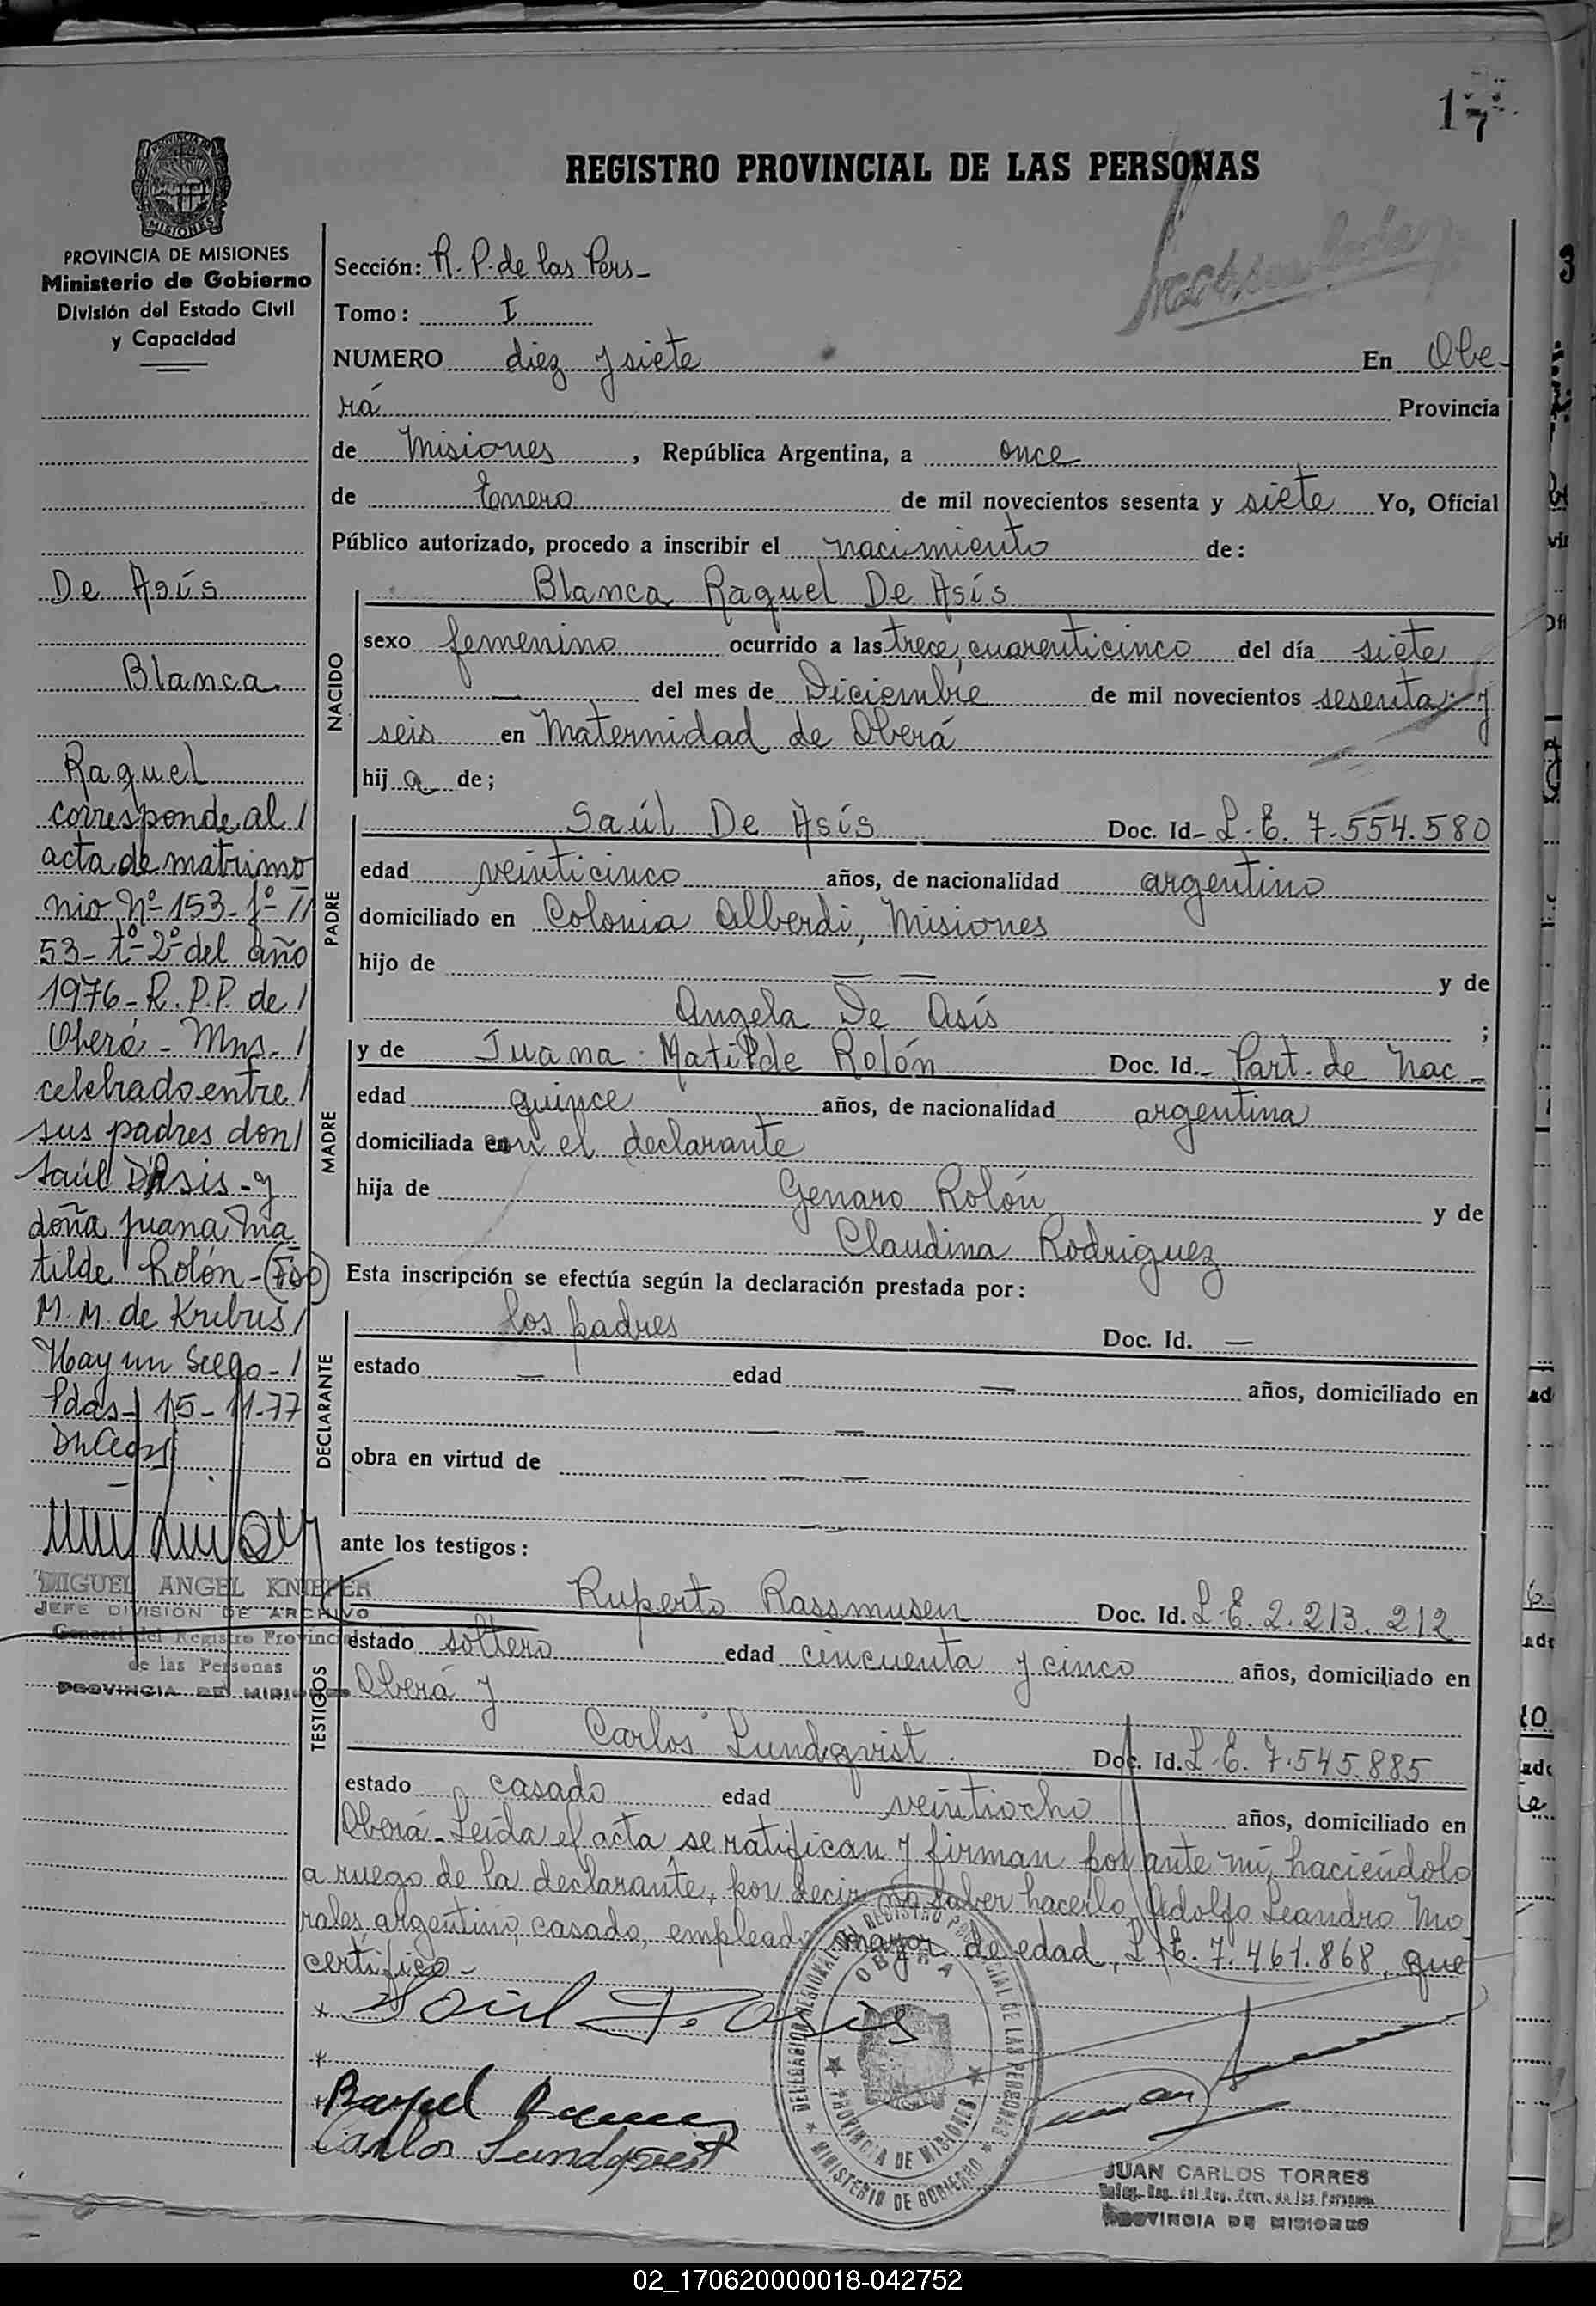 17
REGISTRO PROVINCIAL DE LAS PERSONAS
PROVINCIA DE MISIONES
PROVINCIA DE MISIONES
Ministerio de Gobierno
División del Estado Civil
y Capacidad
De Asís
Blanca
Raquel
corresponde al /
acta de matrimo
nio Nº 153 - fº
53 - tº 2º del año
1976 - R. P. P. de /
Oberá - Mns. /
celebrado entre /
sus padres don /
Saúl D'Asis - y
doña Juana Ma
tilde Rolón - (Fdo)
M. M. de Kribus /
Hay un Sello - /
Pdas - 15 - 11-77
MIGUEL ANGEL KNIEFER
JEFE DIVISION DE ARCHIVO
General del Registro Provincial
de las Personas
PROVINCIA DE MISIONES
Sección: R. P. de las Pers -
Tomo: I
NUMERO diez y siete En Obe-
rá Provincia
de Misiones, República Argentina, a once
de Enero de mil novecientos sesenta y siete Yo, Oficial
Público autorizado, procedo a inscribir el nacimiento de:
NACIDO
Blanca Raquel De Asís
sexo femenino ocurrido a las trece, cuarenticinco del día siete
— del mes de Diciembre de mil novecientos sesenta y
seis en Maternidad de Oberá
hij a de;
PADRE
Saúl De Asís Doc. Id- L. E. 7.554.580
edad veinticinco años, de nacionalidad argentino
domiciliado en Colonia Alberdi, Misiones
hijo de — — y de
Angela De Asís ;
MADRE
y de Juana Matilde Rolón Doc. Id.- Part. de Nac -
edad quince años, de nacionalidad argentina
domiciliada con el declarante
hija de Genaro Rolón y de
Claudina Rodriguez
Esta inscripción se efectúa según la declaración prestada por:
DECLARANTE
los padres Doc. Id. —
estado — edad — años, domiciliado en
— —
obra en virtud de — —
— —
ante los testigos:
TESTIGOS
Ruperto Rassmusen Doc. Id. L. E. 2.213.212
estado soltero edad cincuenta y cinco años, domiciliado en
Oberá y
Carlos Lundqvist. Doc. Id. L. E. 7.545.885
estado casado edad veintiocho años, domiciliado en
Oberá - Leída el acta se ratifican y firman por ante mí, haciéndolo
a ruego de la declarante, por decir no saber hacerlo, Adolfo Leandro Mo
rales, argentino, casado, empleado, mayor de edad, L. E. 7.461.868, que
certifico -
Saúl D. Asís
Carlos Lundqvist
DELEGACION REGIONAL DEL REGISTRO PROVINCIAL DE LAS PERSONAS
OBERA
PROVINCIA DE MISIONES
MINISTERIO DE GOBIERNO
JUAN CARLOS TORRES
PROVINCIA DE MISIONES
02_170620000018-042752